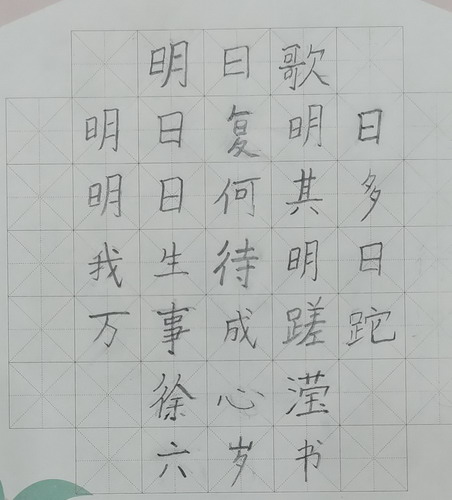 明日歌
明日复明日
明日何其多
我生待明日
万事成蹉跎
徐心滢
六岁书